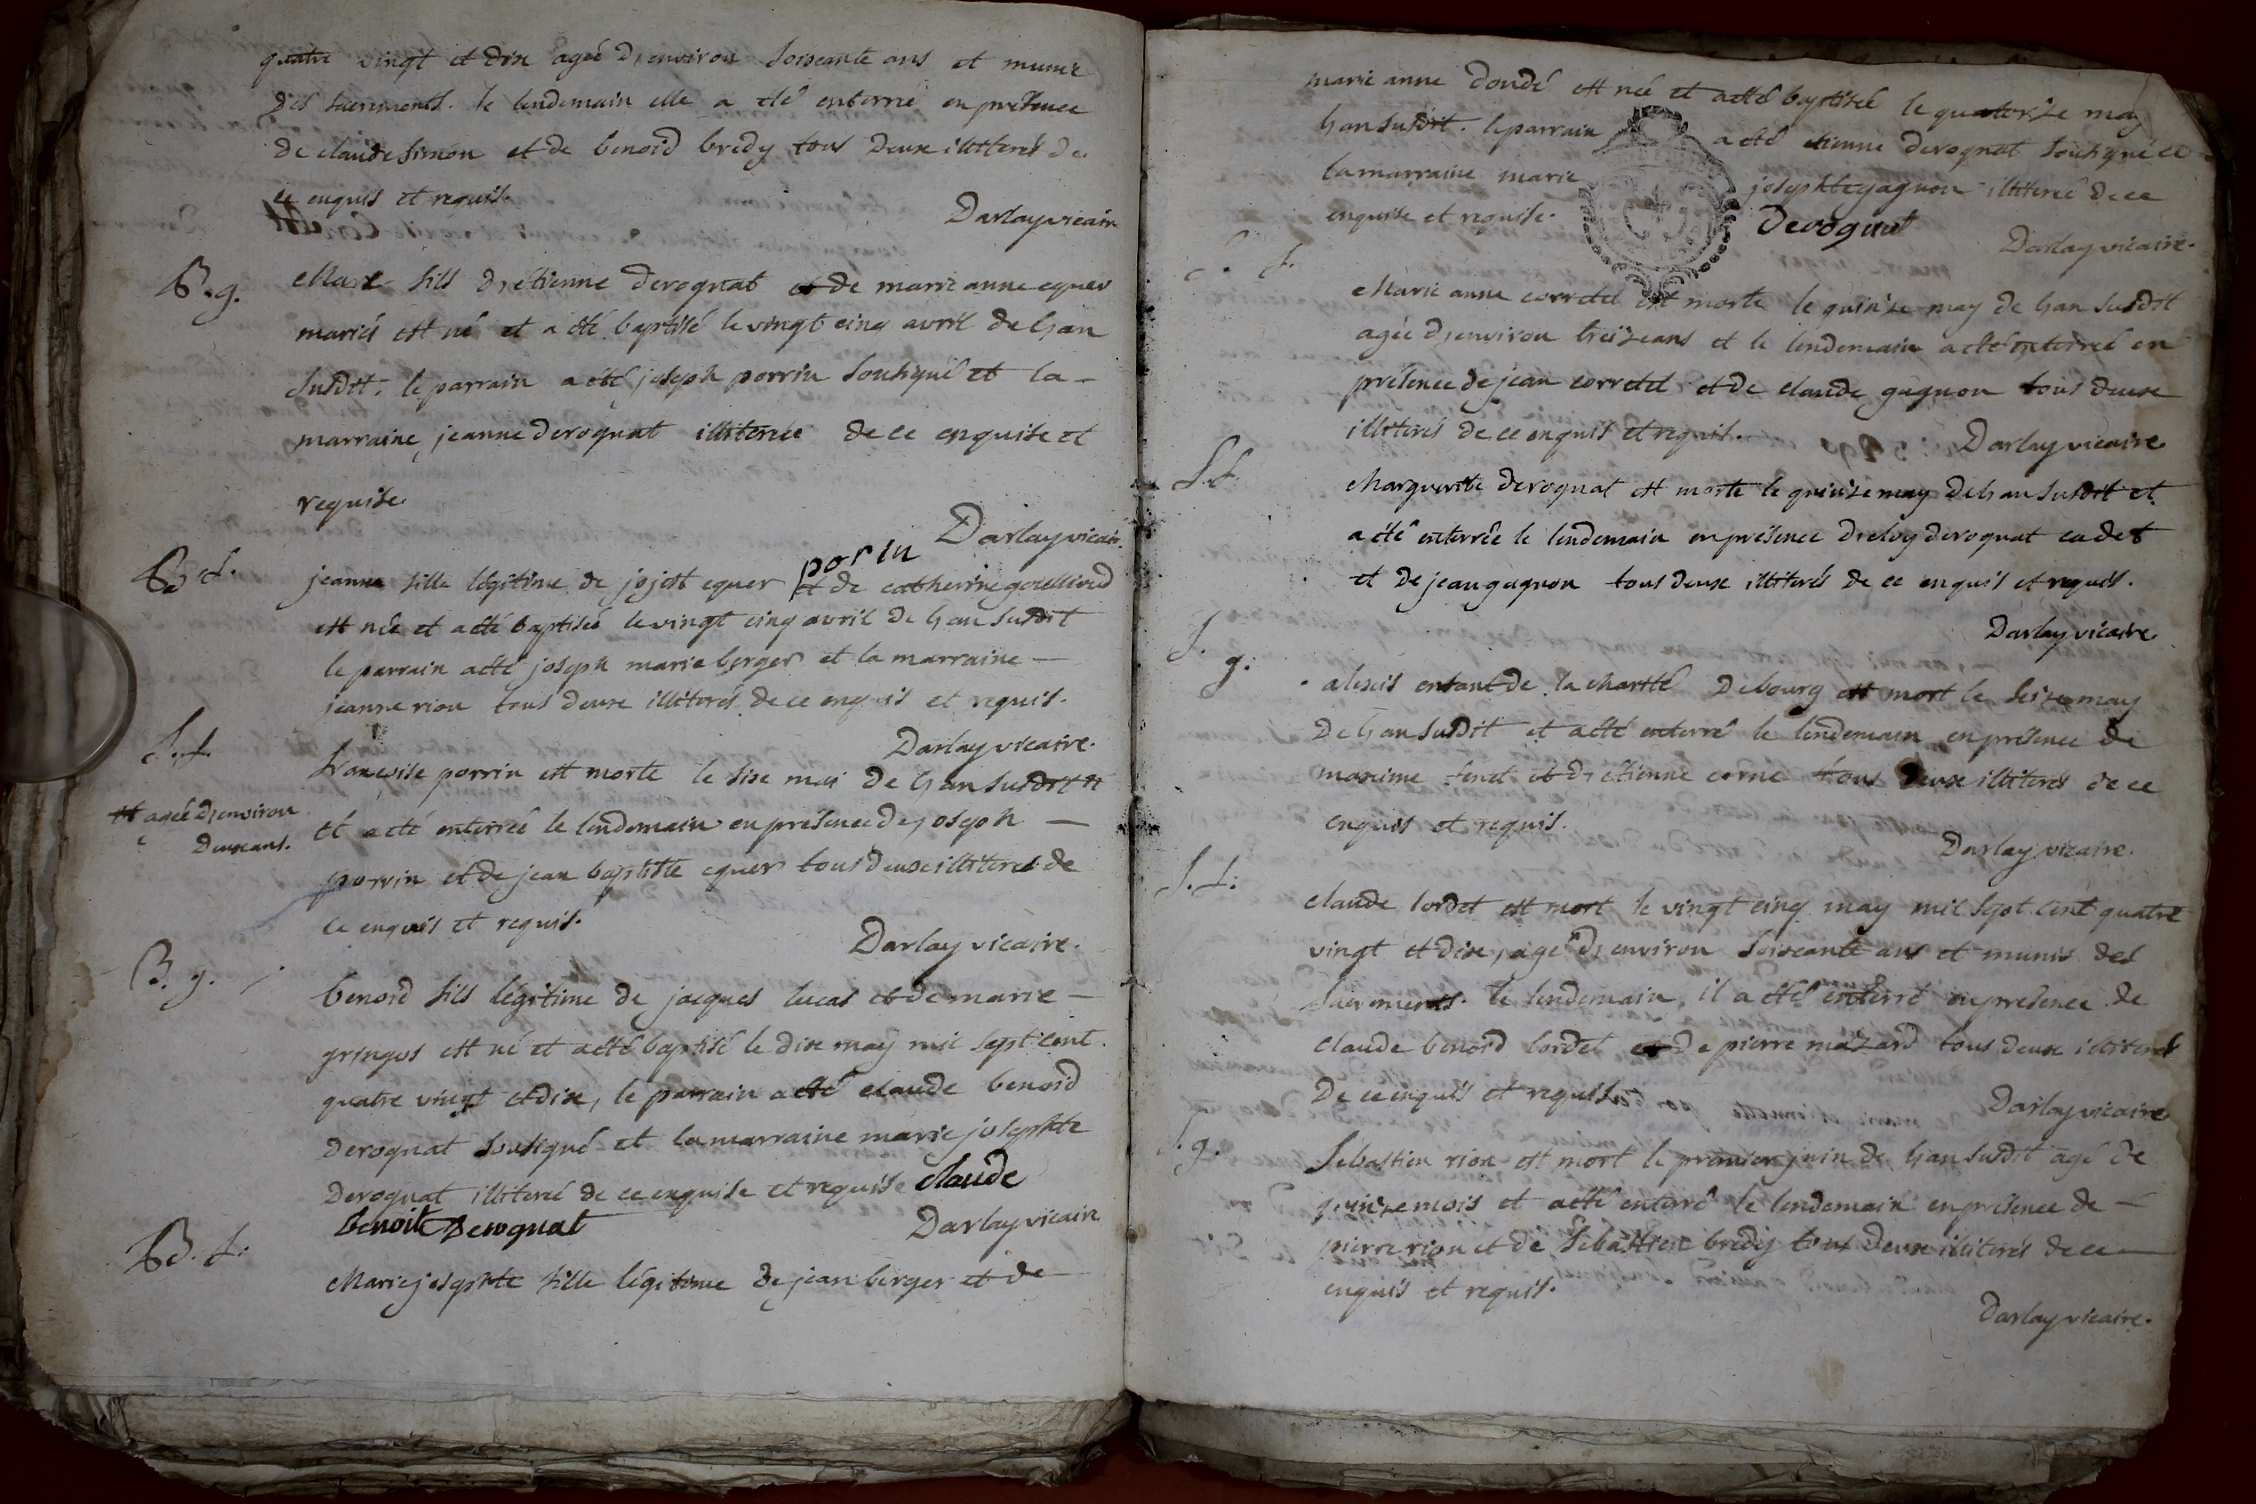 quatre vingt et dix agée d'environ soixante ans et munie
des sacrements. le lendemain elle a été enterré en présence
de claude simon et de benoid bredy tous deux illiterés de
ce enquis et requis.
Darlay vicair
B. g.
Marc fils d'etienne devognat et de marie anne equer
mariés est né et a été baptisé le vingt cinq avril de l'an
susdit. le parrain a été joseph porrin sousigné et la
marraine jeanne devognat illiterée de ce enquise et
requise.
porin
Darlay vicair.
B. f.
jeanne fille légitime de jojest equer et de catherine
est née et a été baptisée le vingt cinq avril de l'an susdit
le parrain a été joseph marie berger et la marraine
jeanne riou tous deux illiterés de ce enquis et requis.
Darlay vicaire.
S. f.
françoise porrin est morte le six mai de l'an susdit #
# agée d'environ
deux ans.
et a été enterrée le lendemain en présence de joseph
porrin et de jean baptiste equer tous deux illiterés de
ce enquis et requis.
Darlay vicaire.
B. g.
benoid fils légitime de jacques lucas et de marie
gringos est né et a été baptisé le dix may mil sept cent
quatre vingt et dix, le parrain a été claude benoid
devognat sousigné et la marraine marie josephte
devognat illiteré de ce enquise et requise claude
Benoit Devognat
Darlay vicair
B. f.
Marie josephte fille légitime de jean berger et de
marie anne doudé est née et a été baptisée le quatorze may
l'an susdit. le parrain a été etienne devognat sousigné et
la marraine marie josephte gagnon illiteré de ce
enquise et requise.
Devognat
Darlay vicaire.
S. f.
Marie anne corretel est morte le quinze may de l'an susdit
agée d'environ treize ans et le lendemain a été enterrée en
présence de jean corretel et de claude gagnon tous deux
illiterés de ce enquis et requis.
Darlay vicaire
S. f.
Marguerite devognat est morte le quinze may de l'an susdit et
a été enterrée le lendemain en présence d'eloy devognat cadet
et de jean gagnon tous deux illiterés de ce enquis et requis.
Darlay vicaire.
S. g.
alexis enfant de la charité de bourg est mort le seize may
de l'an susdit et a été enterré le lendemain en présence de
maxime et d'etienne corné tous deux illiterés de ce
enquis et requis.
Darlay vicaire.
S. f.
claude lordet est mort le vingt cinq may mil sept cent quatre
vingt et dix, agé d'environ soixante ans et munis des
sacrments. le lendemain, il a été enterré en présence de
claude benoid lordet et de pierre mazard tous deux illiterés
de ce enquis et requis.
Darlay vicaire
S. g.
Sebastien riou est mort le premier juin de l'an susdit agé de
quinze mois et a été enterré le lendemain en présence de
pierre riou et de Sebastien bredy tous deux illiterés de ce
enquis et requis.
Darlay vicaire.